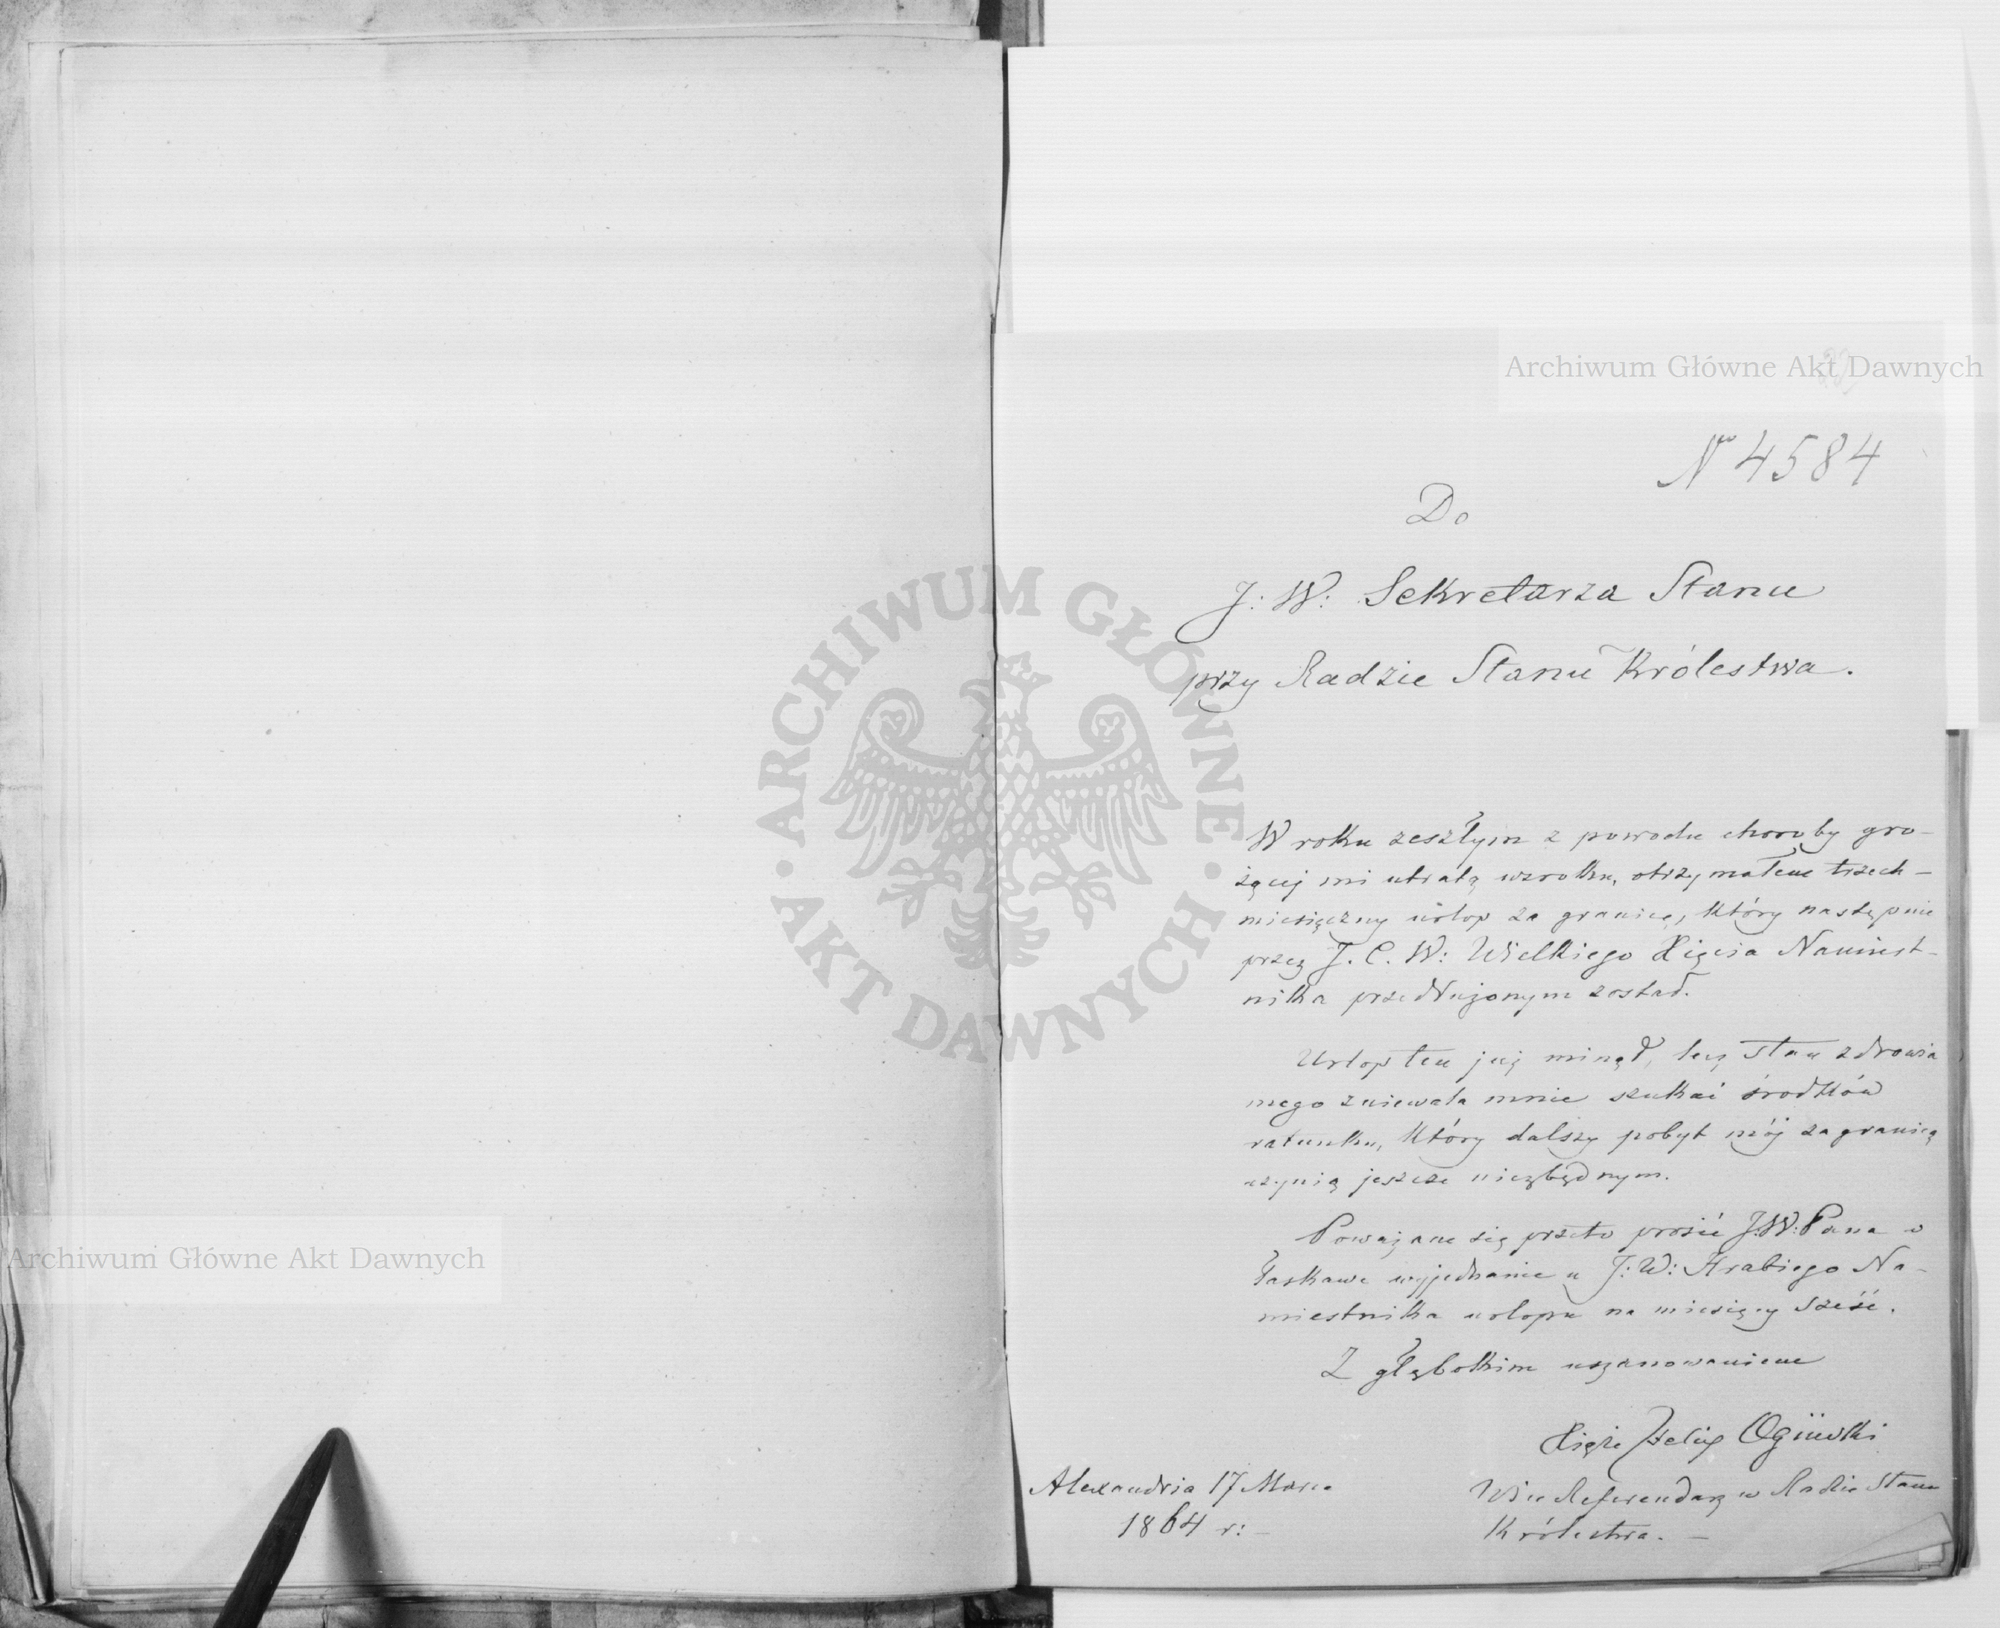 Archiwum Główne Akt Dawnych
No 4584
Do
J: W: Sekretarza Stanu
przy Radzie Stanu Królestwa.
W roku zeszłym z powodu choroby gro-
żącej mi utratą wzroku, otrzymałem trzech-
miesięczny urlop za granicę, który następnie
przez J. C. W: Wielkiego Xięcia Namiest-
nika przedłużonym został.
Urlop ten już minął, lecz stan zdrowia
mego zniewala mnie szukać środków
ratunku, który dalszy pobyt mój za granicą
czynią jeszcze niezbędnym.
Poważam się przeto prosić J:W: Pana o
łaskawe wyjednanie u J: W: Hrabiego Na-
miestnika urlopu na miesięcy sześć.
Z głębokim uszanowaniem
Xiąże Felix Ogiński
Wice Referendarz w Radzie Stanu
Królestwa. —
Alexandria 17 Marca
1864 r: —
ARCHIWUM GŁÓWNE · AKT DAWNYCH ·
Archiwum Główne Akt Dawnych